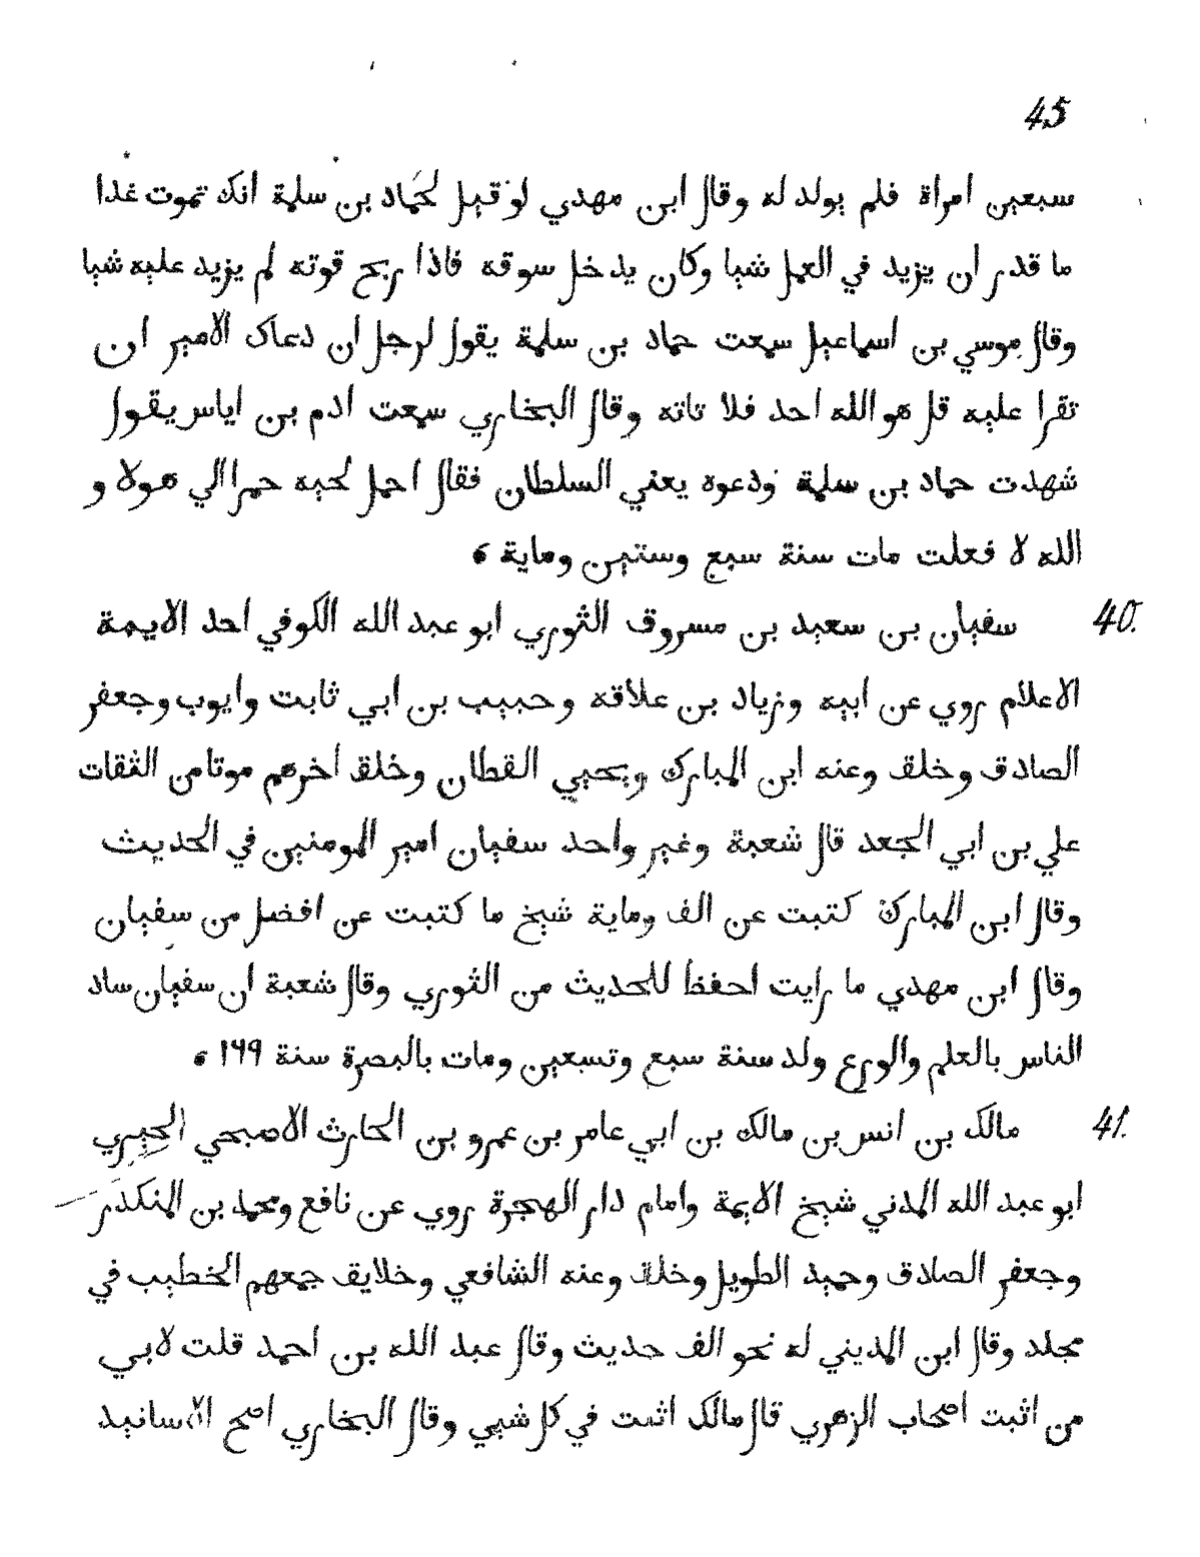 45
سبعين امراة فلم يولد له وقال ابن مهدي لو قيل لحماد بن سلمة انك تموت غدا
ما قدر ان يزيد في العمل شيا وكان يدخل سوقه فاذا ربح قوته لم يزيد عليه شيا
وقال موسي بن اسماعيل سمعت حماد بن سلمة يقول لرجل ان دعاك الامير ان
تقرا عليه قل هو الله احد فلا تاته وقال البخاري سمعت ادم بن اياس يقول
شهدت حماد بن سلمة ودعوه يعني السلطان فقال احمل لحيه حمرا الي هولا و
الله لا فعلت مات سنة سبع وستين وماية
40. سفيان بن سعيد بن مسروق الثوري ابو عبد الله الكوفي احد الايمة
الاعلام روي عن ابيه وزياد بن علاقه وحبيب بن ابي ثابت وايوب وجعفر
الصادق وخلق وعنه ابن المبارك ويحيي القطان وخلق اخرهم موتا من الثقات
علي بن ابي الجعد قال شعبة وغير واحد سفيان امير المومنين في الحديث
وقال ابن المبارك كتبت عن الف وماية شيخ ما كتبت عن افضل من سفيان
وقال ابن مهدي ما رايت احفظ للحديث من الثوري وقال شعبة ان سفيان ساد
الناس بالعلم والورع ولد سنة سبع وتسعين ومات بالبصرة سنة ١٦٩
41. مالك بن انس بن مالك بن ابي عامر بن عمرو بن الحارث الاصبحي الحميري
ابو عبد الله المدني شيخ الايمة وامام دار الهجرة روي عن نافع ومحمد بن المنكدر
وجعفر الصادق وحميد الطويل وخلق وعنه الشافعي وخلايق جمعهم الخطيب في
مجلد وقال ابن المديني له نحو الف حديث وقال عبد الله بن احمد قلت لابي
من اثبت اصحاب الزهري قال مالك اثبت في كل شيي وقال البخاري اصح الاسانيد